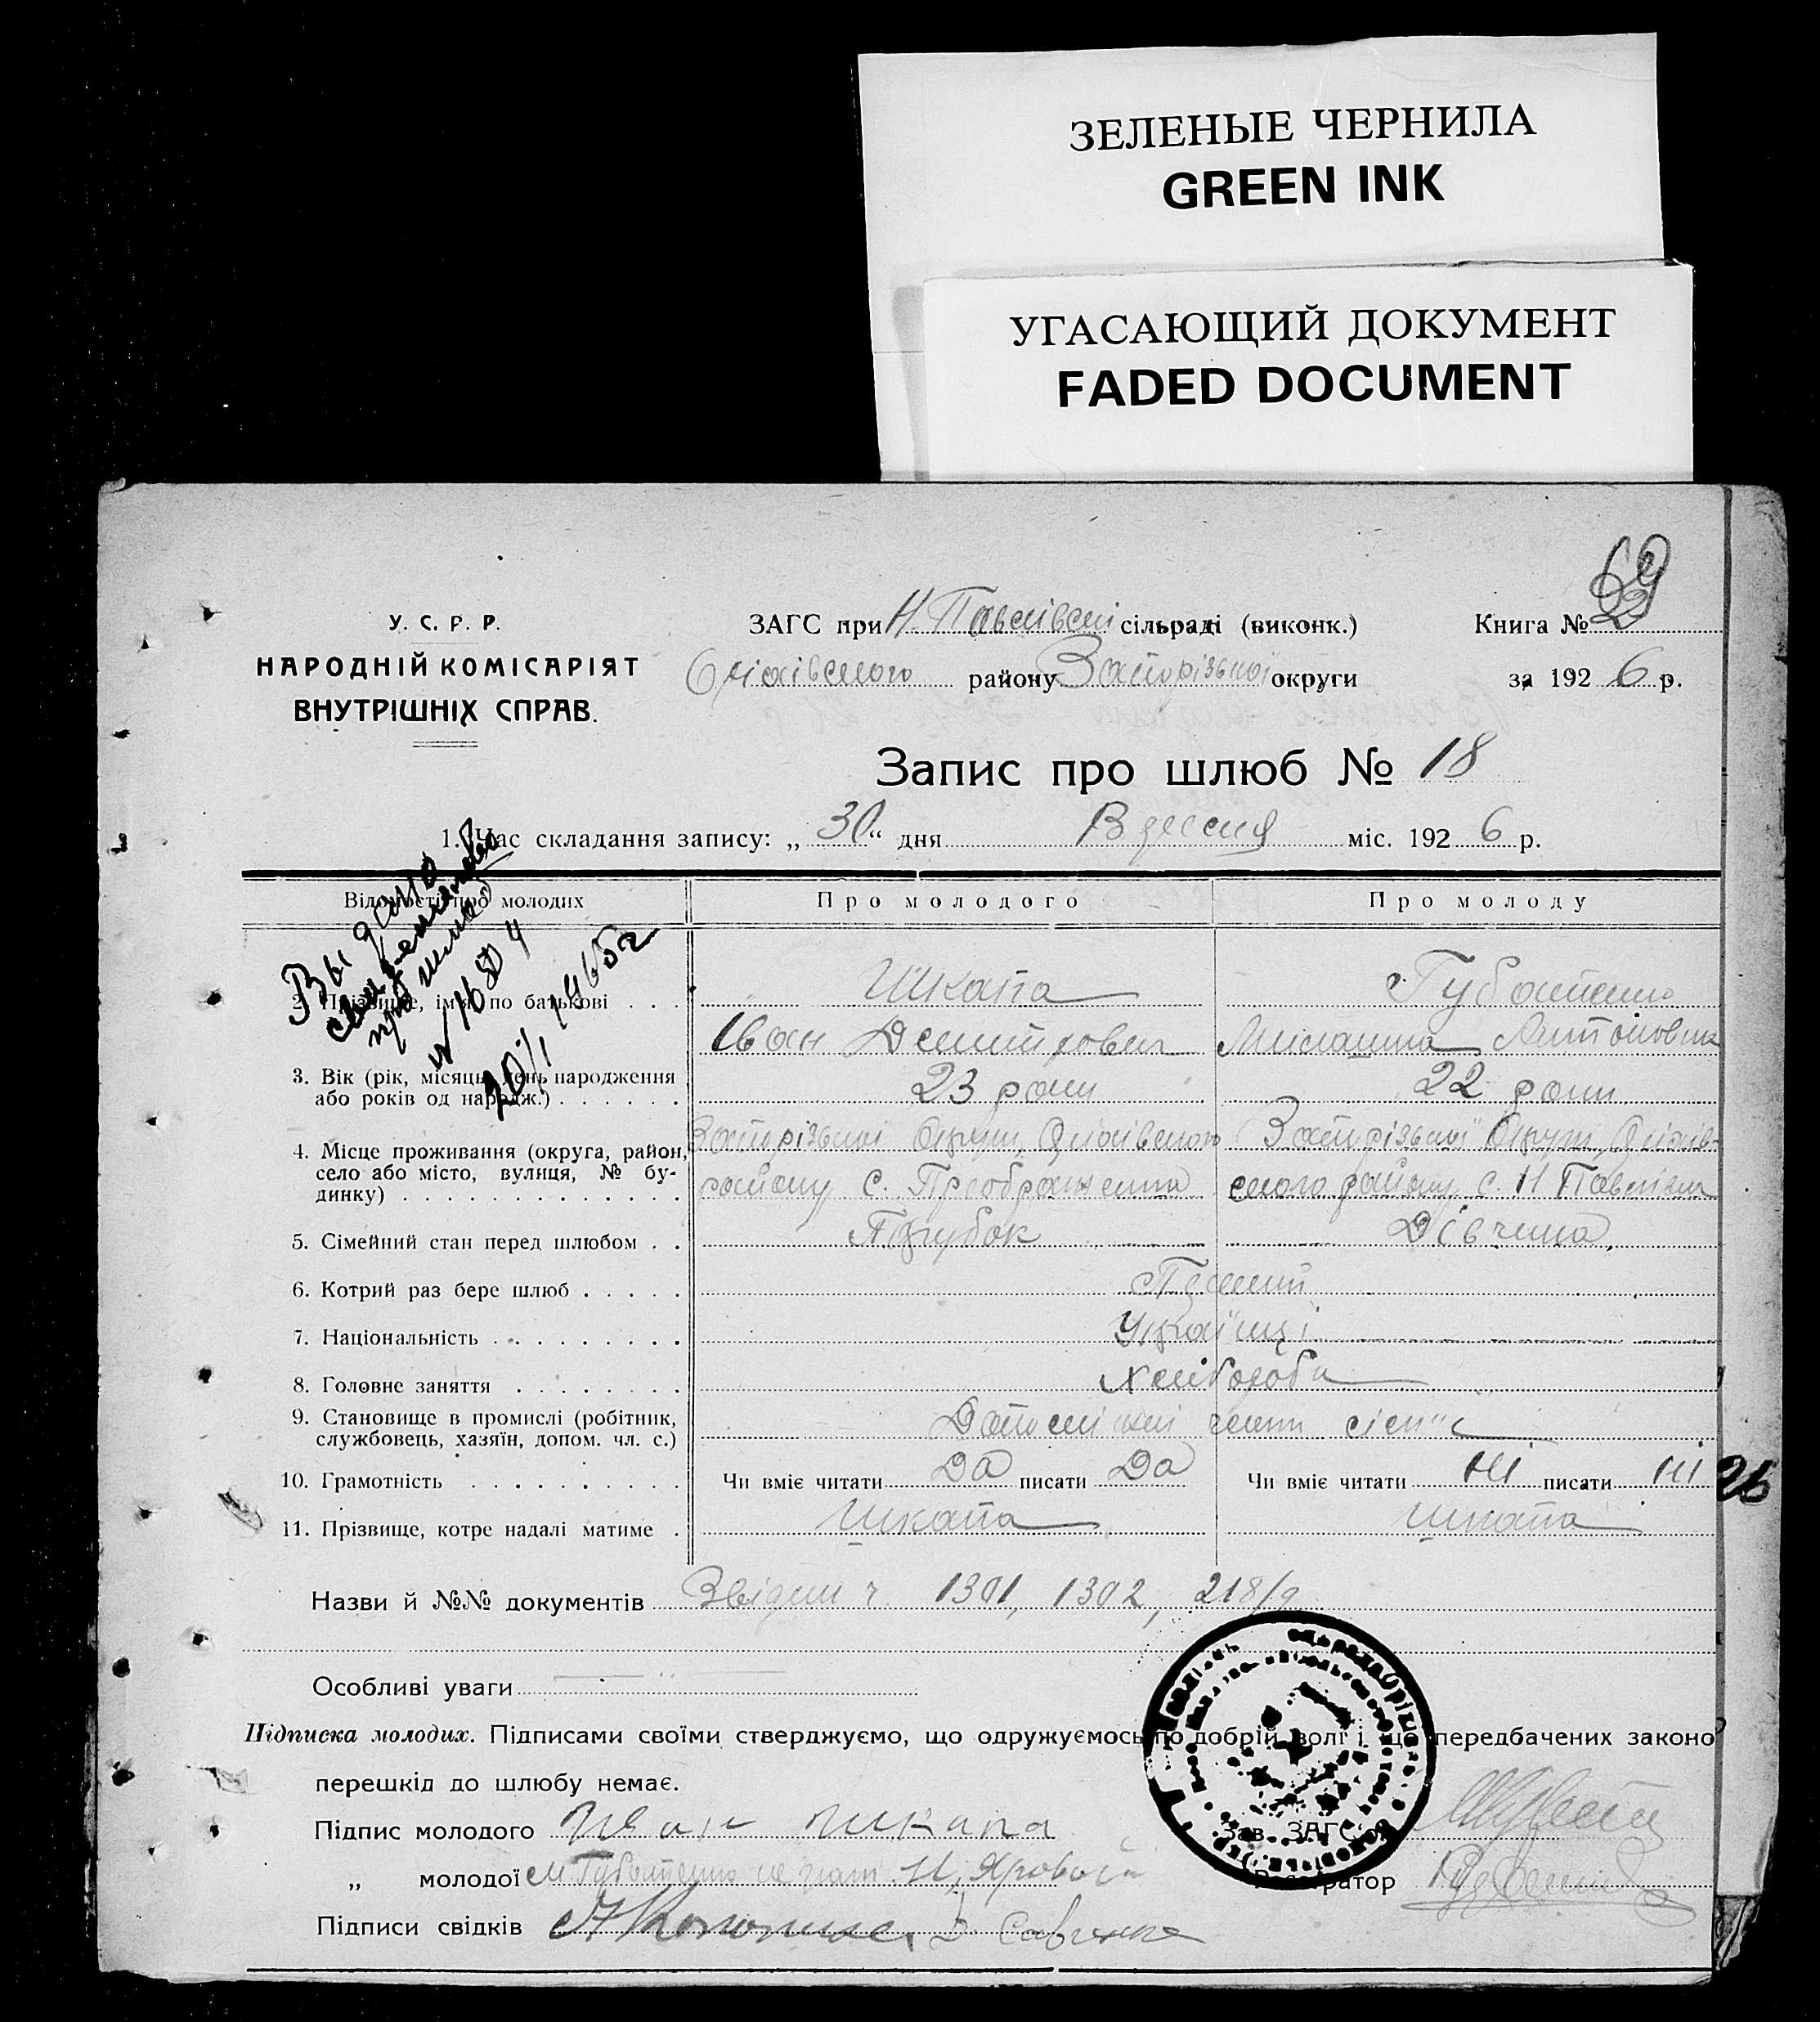 ЗЕЛЕНЫЕ ЧЕРНИЛА
GREEN INK
УГАСАЮЩИЙ ДОКУМЕНТ
FADED DOCUMENT
69
У. С. Р. Р.
НАРОДНІЙ КОМІСАРІЯТ
ВНУТРІШНІХ СПРАВ.
ЗАГС при Н. Павлівські сільраді (виконк.)
Книга №
району Запорізької округи
за 1926 р.
Запис про шлюб № 18
1. Час складання запису: „30“ дня Вресня міс. 1926 р.
Відомості про молодих
Про молодого
Про молоду
Выдано
свидетельство
про шлюб
№
20/I 1965г
2. Прізвище, ім'я, по батькові . . .
Шкапа
Губатенко
Іван Демитрович
3. Вік (рік, місяць, день народження
або років од народж.) . . . . . .
23 роки
22 роки
4. Місце проживання (округа, район,
село або місто, вулиця, № бу-
динку) . . . . . . . . . . . . .
Запорізької Округи,
району с. Преображенка
Запорізької Округи,
ського району с. Н Павлівки
5. Сімейний стан перед шлюбом . .
Парубок
Дівчина
6. Котрий раз бере шлюб . . . . .
Перший
7. Національність . . . . . . . .
Українці
8. Головне заняття . . . . . . . .
Хлібороби
9. Становище в промислі (робітник,
службовець, хазяїн, допом. чл. с.)
члени сім'ї
10. Грамотність . . . . . . . . . .
Чи вміє читати Да писати Да
Чи вміє читати Ні писати Ні
26
11. Прізвище, котре надалі матиме .
Шкапа
Шкапа
Назви й №№ документів 1301, 1302, 218/9
Особливі уваги
Підписка молодих. Підписами своїми стверджуємо, що одружуємось по добрій волі і що передбачених законо
перешкід до шлюбу немає.
Підпис молодого Иван шкапа
Зав. ЗАГС'ом
„ молодої М Губатенко
Реєстратор
Підписи свідків Савченко